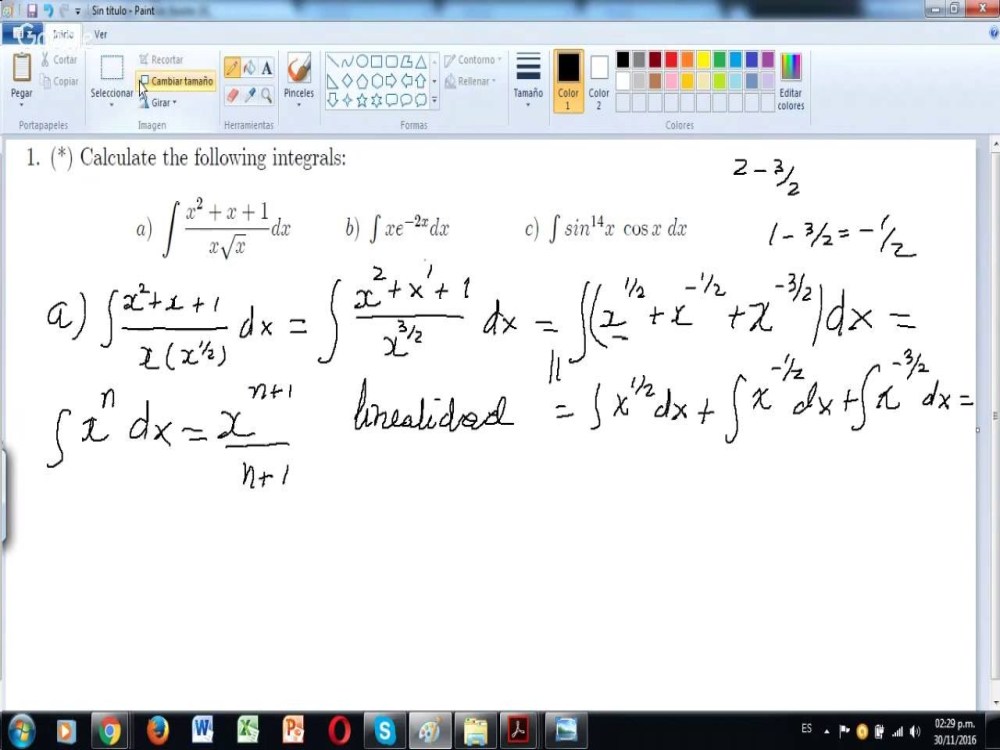 Sin título - Paint
Inicio Ver
Pegar
Cortar
Copiar
Portapapeles
Seleccionar
Recortar
Cambiar tamaño
Girar
Imagen
A
Herramientas
Pinceles
Contorno
Rellenar
Formas
Tamaño
Color 1
Color 2
Editar colores
Colores
1. (*) Calculate the following integrals:
a) ∫ (x² + x + 1)/(x√x) dx b) ∫ xe⁻²ˣdx c) ∫ sin¹⁴x cos x dx
2 - 3/2
1 - 3/2 = -1/2
a) ∫ (x² + x + 1)/(x(x^1/2)) dx = ∫ (x² + x¹ + 1)/(x^3/2) dx = ∫(x^1/2 + x^-1/2 + x^-3/2)dx =
∫ xⁿ dx = x^n+1/n+1 linealidad = ∫ x^1/2 dx + ∫ x^-1/2 dx + ∫ x^-3/2 dx =
ES 02:29 p.m.
30/11/2016